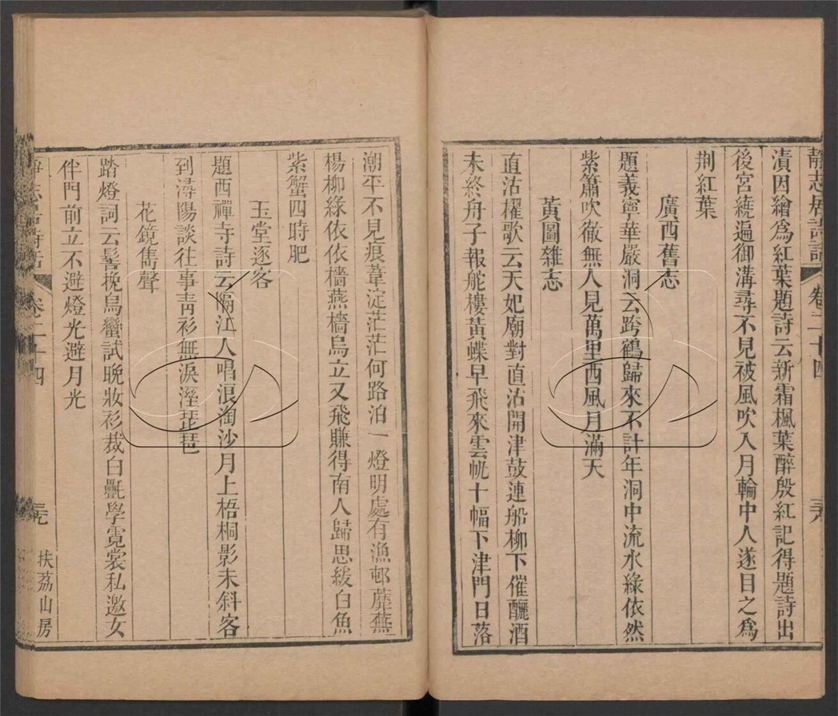 靜志居詩話 卷二十四 三六
漬因繪為紅葉題詩云新霜楓葉醉殷紅記得題詩出
後宮繞遍御溝尋不見被風吹入月輪中人遂目之為
荆紅葉
廣西舊志
題義寧華嚴洞云跨鶴歸來不計年洞中流水綠依然
紫簫吹徹無人見萬里西風月滿天
黃圖雜志
直沽櫂歌云天妃廟對直沽開津鼓連船柳下催釃酒
未終舟子報舵樓黃蝶早飛來雲帆十幅下津門日落
潮平不見痕葦淀茫茫何路泊一燈明處有漁邨蘼蕪
楊柳綠依依檣燕檣烏立又飛賺得南人歸思緩白魚
紫蟹四時肥
玉堂逐客
題西禪寺詩云隔江人唱浪淘沙月上梧桐影未斜客
到潯陽談往事青衫無淚溼琵琶
花鏡雋聲
踏燈詞云髻挽烏蠻試晚妝衫裁白㲲學霓裳私邀女
伴門前立不避燈光避月光
靜志居詩話 卷二十四 三七 扶荔山房